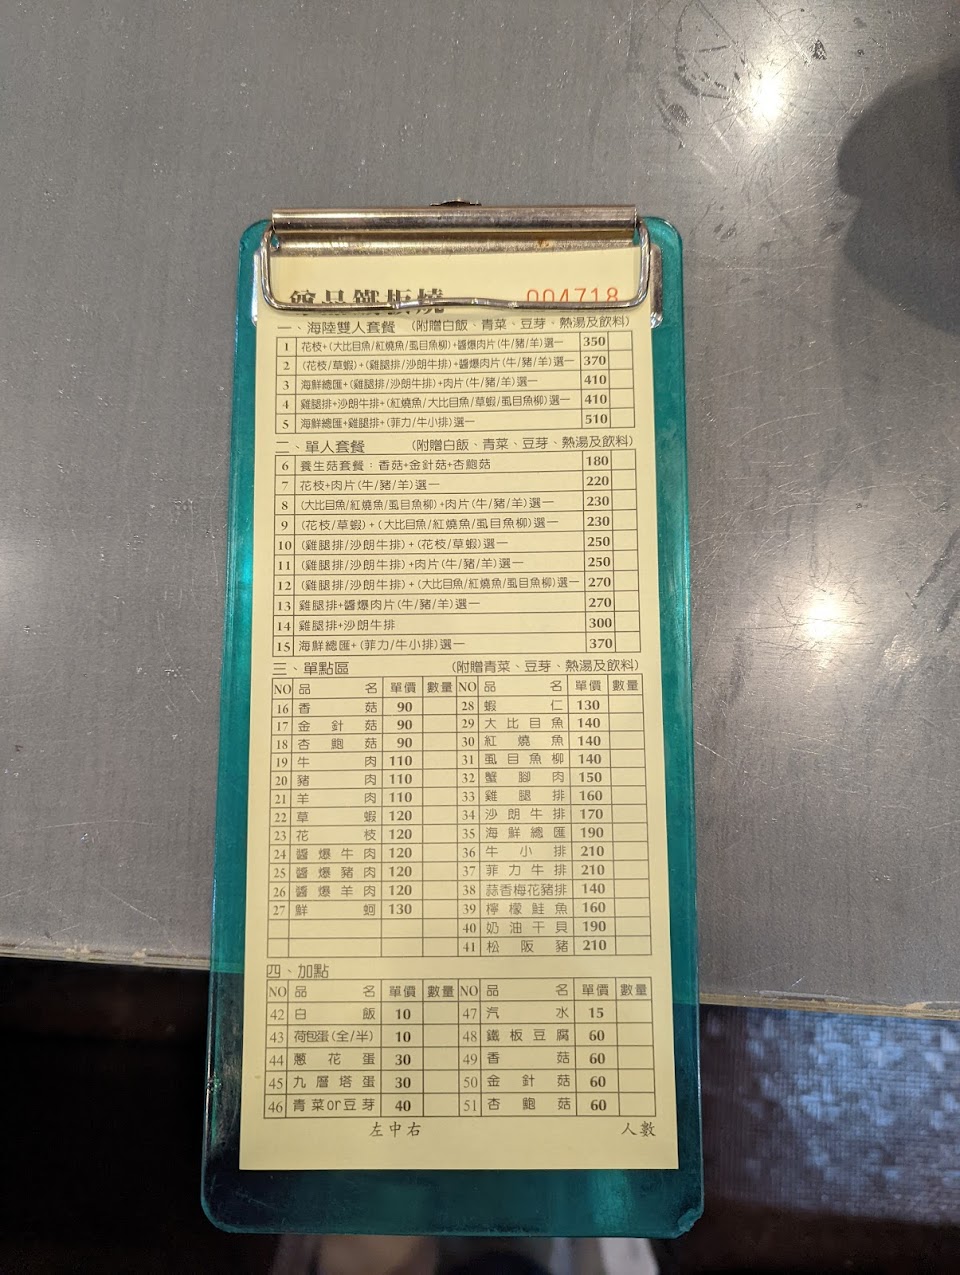 品鐵板燒 004718
一、海陸雙人套餐 (附贈白飯、青菜、豆芽、熱湯及飲料)
1 花枝+(大比目魚/紅燒魚/虱目魚柳)+醬爆肉片(牛/豬/羊)選一 350
2 (花枝/草蝦)+(雞腿排/沙朗牛排)+醬爆肉片(牛/豬/羊)選一 370
3 海鮮總匯+(雞腿排/沙朗牛排)+肉片(牛/豬/羊)選一 410
4 雞腿排+沙朗牛排+(紅燒魚/大比目魚/草蝦/虱目魚柳)選一 410
5 海鮮總匯+雞腿排+(菲力/牛小排)選一 510
二、單人套餐 (附贈白飯、青菜、豆芽、熱湯及飲料)
6 養生菇套餐：香菇+金針菇+杏鮑菇 180
7 花枝+肉片(牛/豬/羊)選一 220
8 (大比目魚/紅燒魚/虱目魚柳)+肉片(牛/豬/羊)選一 230
9 (花枝/草蝦)+(大比目魚/紅燒魚/虱目魚柳)選一 230
10 (雞腿排/沙朗牛排)+(花枝/草蝦)選一 250
11 (雞腿排/沙朗牛排)+肉片(牛/豬/羊)選一 250
12 (雞腿排/沙朗牛排)+(大比目魚/紅燒魚/虱目魚柳)選一 270
13 雞腿排+醬爆肉片(牛/豬/羊)選一 270
14 雞腿排+沙朗牛排 300
15 海鮮總匯+(菲力/牛小排)選一 370
三、單點區 (附贈青菜、豆芽、熱湯及飲料)
NO 品名 單價 數量 NO 品名 單價 數量
16 香菇 90 28 蝦仁 130
17 金針菇 90 29 大比目魚 140
18 杏鮑菇 90 30 紅燒魚 140
19 牛肉 110 31 虱目魚柳 140
20 豬肉 110 32 蟹腳肉 150
21 羊肉 110 33 雞腿排 160
22 草蝦 120 34 沙朗牛排 170
23 花枝 120 35 海鮮總匯 190
24 醬爆牛肉 120 36 牛小排 210
25 醬爆豬肉 120 37 菲力牛排 210
26 醬爆羊肉 120 38 蒜香梅花豬排 140
27 鮮蚵 130 39 檸檬鮭魚 160
40 奶油干貝 190
41 松阪豬 210
四、加點
NO 品名 單價 數量 NO 品名 單價 數量
42 白飯 10 47 汽水 15
43 荷包蛋(全/半) 10 48 鐵板豆腐 60
44 蔥花蛋 30 49 香菇 60
45 九層塔蛋 30 50 金針菇 60
46 青菜or豆芽 40 51 杏鮑菇 60
左中右 人數